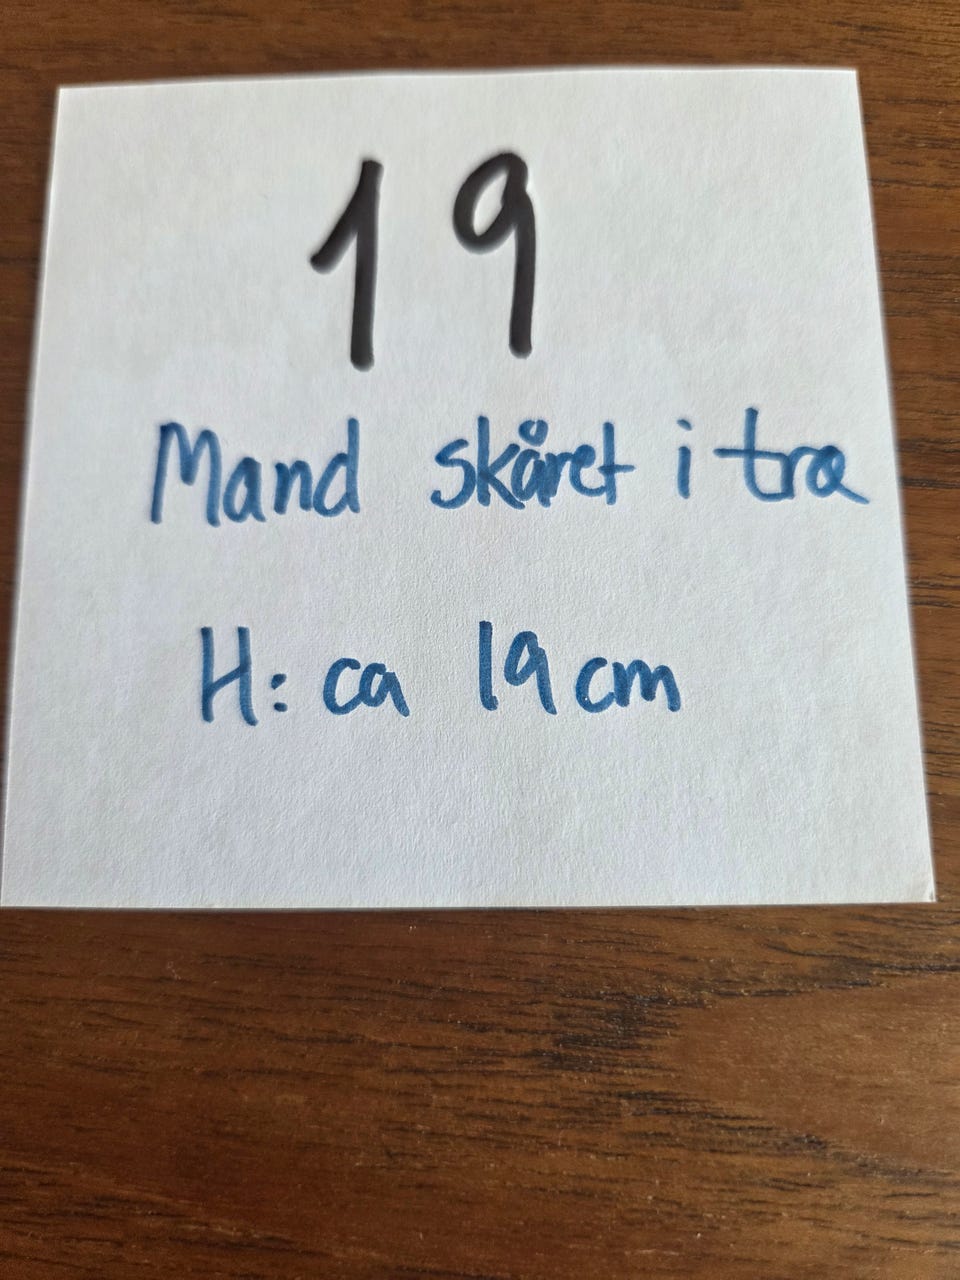 19
Mand skåret i træ
H: ca 19 cm